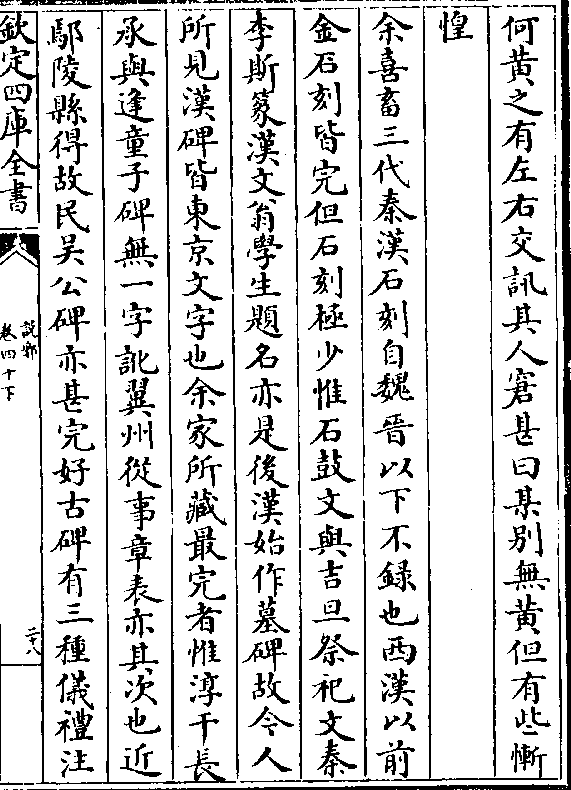 何黄之有左右交訊其人窘甚曰某别無黄但有些慚
惶
余喜畜三代秦漢石刻自魏晉以下不録也西漢以前
金石刻皆完但石刻極少惟石鼓文與吉日祭祀文秦
李斯篆漢文翁學生題名亦是後漢始作墓碑故令人
所見漢碑皆東京文字也余家所藏最完者惟淳于長
承與逢童子碑無一字訛翼州從事章表亦其次也近
鄢陵縣得故民吴公碑亦甚完好古碑有三種儀禮注
欽定四庫全書
説郛
卷四十下
二十八